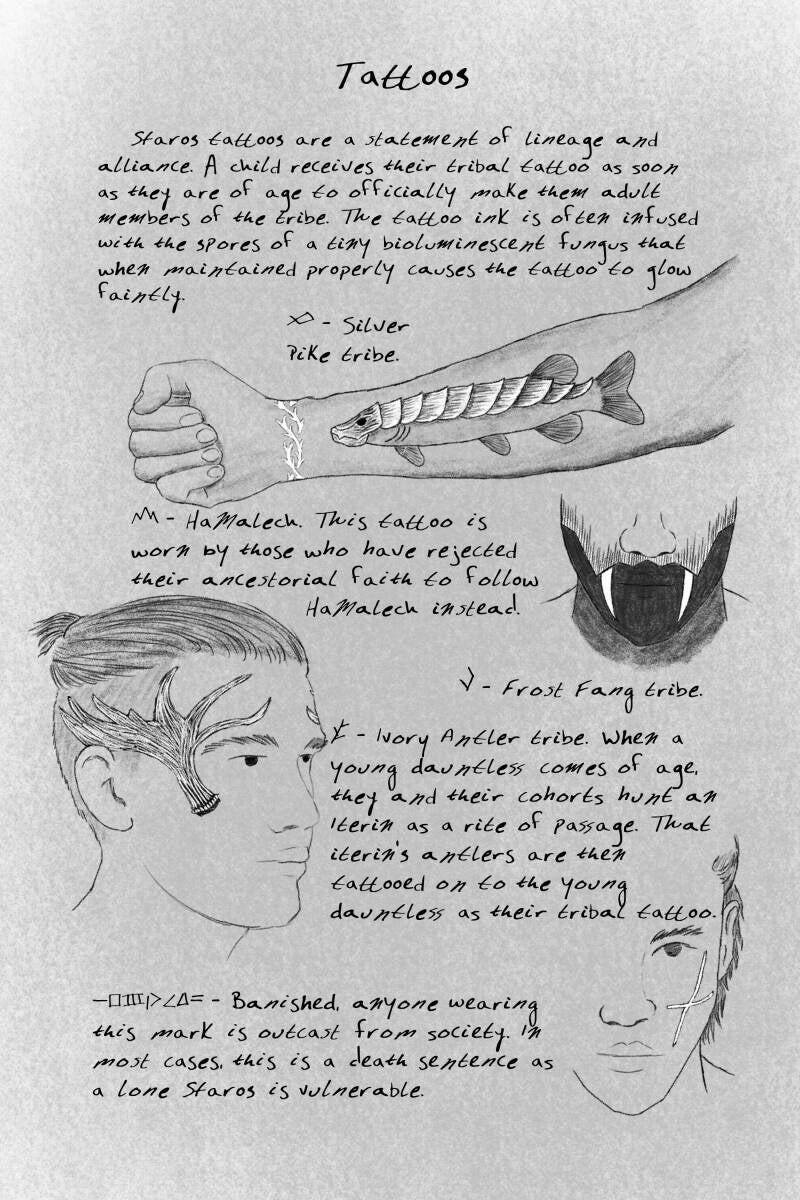 Tattoos
Staros tattoos are a statement of lineage and
alliance. A child receives their tribal tattoo as soon
as they are of age to officially make them adult
members of the tribe. The tattoo ink is often infused
with the spores of a tiny bioluminescent fungus that
when maintained properly causes the tattoo to glow
faintly.
- Silver
Pike tribe.
- HaMalech. This tattoo is
worn by those who have rejected
their ancestorial faith to follow
HaMalech instead.
- Frost Fang tribe.
- Ivory Antler tribe. When a
young dauntless comes of age,
they and their cohorts hunt an
Iterin as a rite of passage. That
iterin's antlers are then
tattooed on to the young
dauntless as their tribal tattoo.
- Banished, anyone wearing
this mark is outcast from society. In
most cases, this is a death sentence as
a lone Staros is vulnerable.